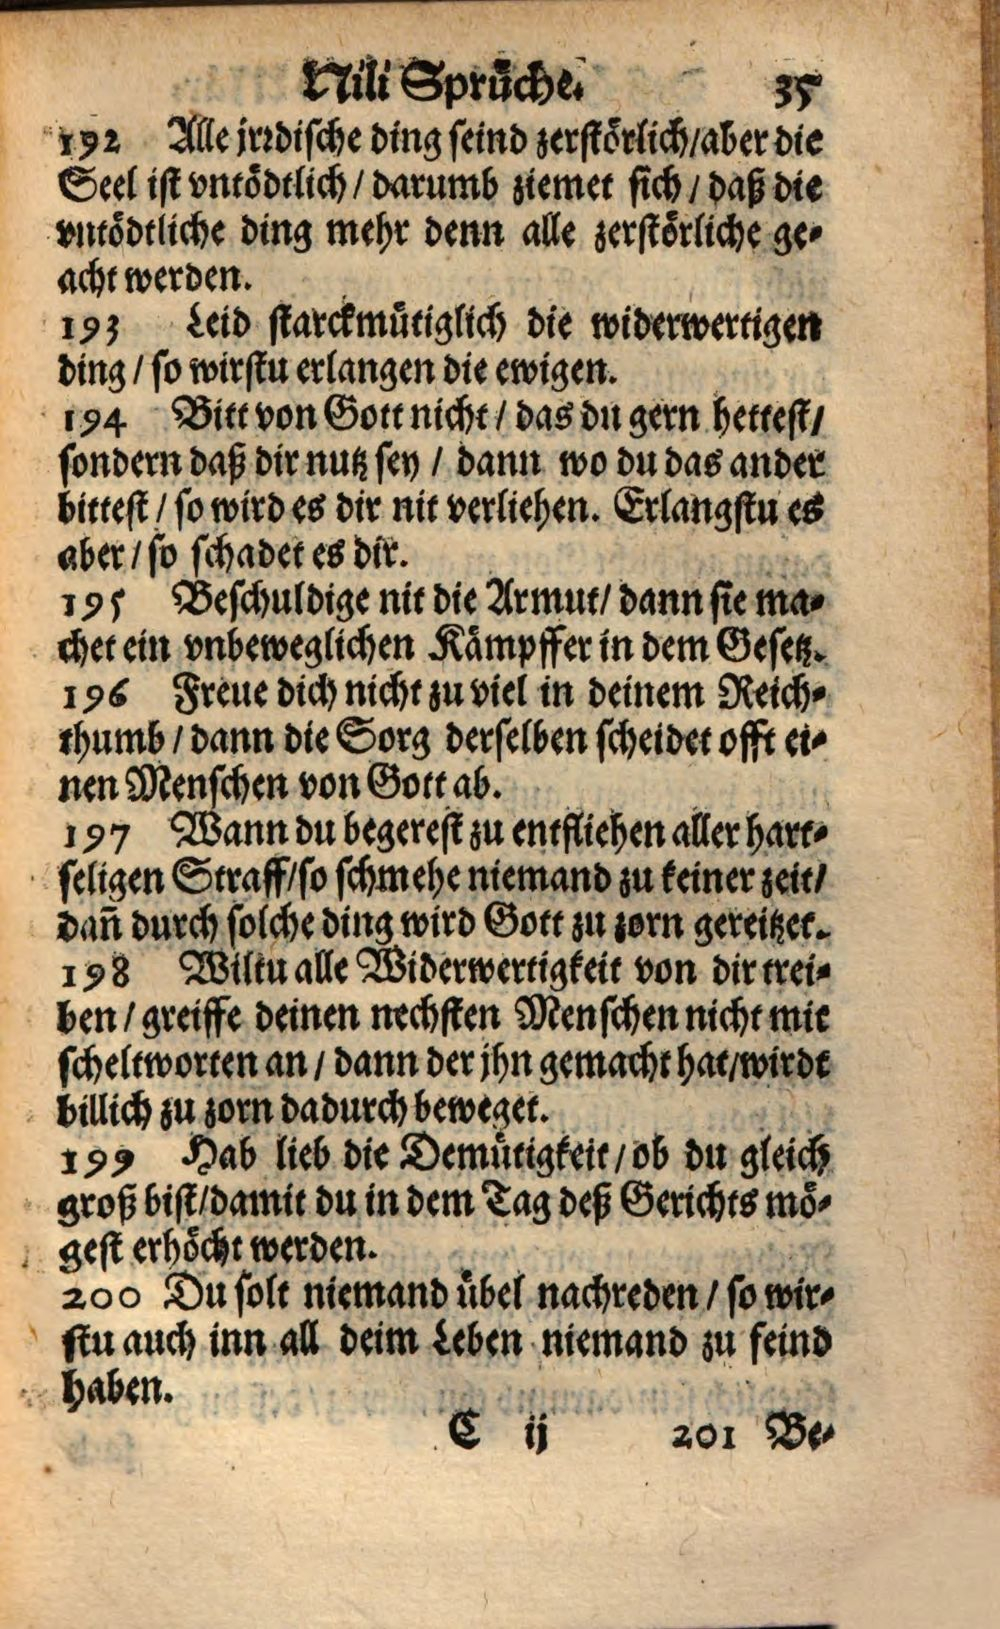 Nili Sprüche. 35
192 Alle jrrdische ding seind zerstörlich/aber die
Seel ist vntödtlich / darumb ziemet sich / daß die
vntödtliche ding mehr denn alle zerstörliche ge-
acht werden.
193 Leid starckmütiglich die widerwertigen
ding / so wirstu erlangen die ewigen.
194 Bitt von Gott nicht / das du gern hettest/
sondern daß dir nutz sey / dann wo du das ander
bittest / so wird es dir nit verliehen. Erlangstu es
aber / so schadet es dir.
195 Beschuldige nit die Armut/ dann sie ma-
chet ein vnbeweglichen Kämpffer in dem Gesetz.
196 Freue dich nicht zu viel in deinem Reich-
thumb / dann die Sorg derselben scheidet offt ei-
nen Menschen von Gott ab.
197 Wann du begerest zu entfliehen aller hart-
seligen Straff/so schmehe niemand zu keiner zeit/
dañ durch solche ding wird Gott zu zorn gereitzet.
198 Wiltu alle Widerwertigkeit von dir trei-
ben / greiffe deinen nechsten Menschen nicht mit
scheltworten an / dann der jhn gemacht hat/wirdt
billich zu zorn dadurch beweget.
199 Hab lieb die Demütigkeit / ob du gleich
groß bist/damit du in dem Tag deß Gerichts mö-
gest erhöcht werden.
200 Du solt niemand übel nachreden / so wir-
stu auch inn all deim Leben niemand zu feind
haben.
C ij 201 Be-